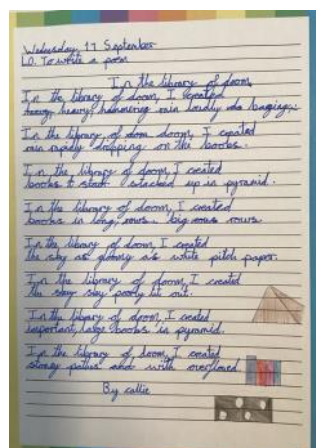 Wednesday, 11 September
LO. To write a poem
In the library of doom,
In the library of doom, I created
heavy, heavy, hammering rain loudly
In the library, of doom, I created
rain rapidly dropping on the books.
In the library of doom, I created
books stacked up in pyramid.
In the library of doom, I created
books in long, rows. big rows.
In the library of doom, I created
the sky as as white pitch paper.
In the library of doom, I created
the sky poorly lit out.
In the library of doom, I created
important, large books in pyramid.
In the library of doom, I created
stoney paths and with overflowed
By callie